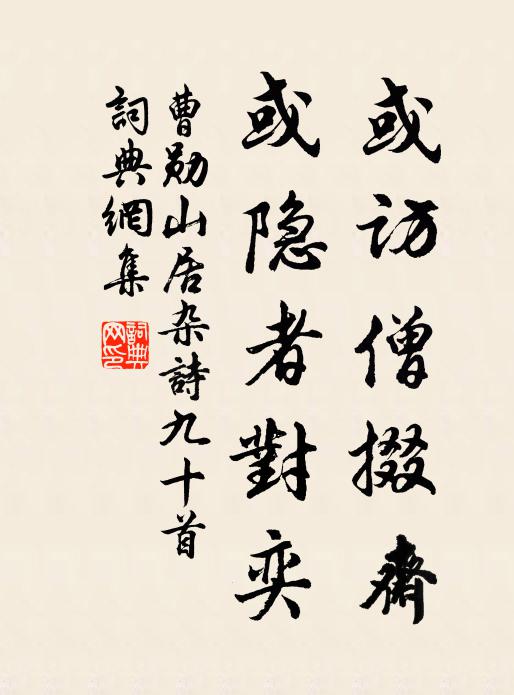 或访僧掇齋
或隐者對奕
曹勋山居杂詩九十首
詞典網集
詞典網印